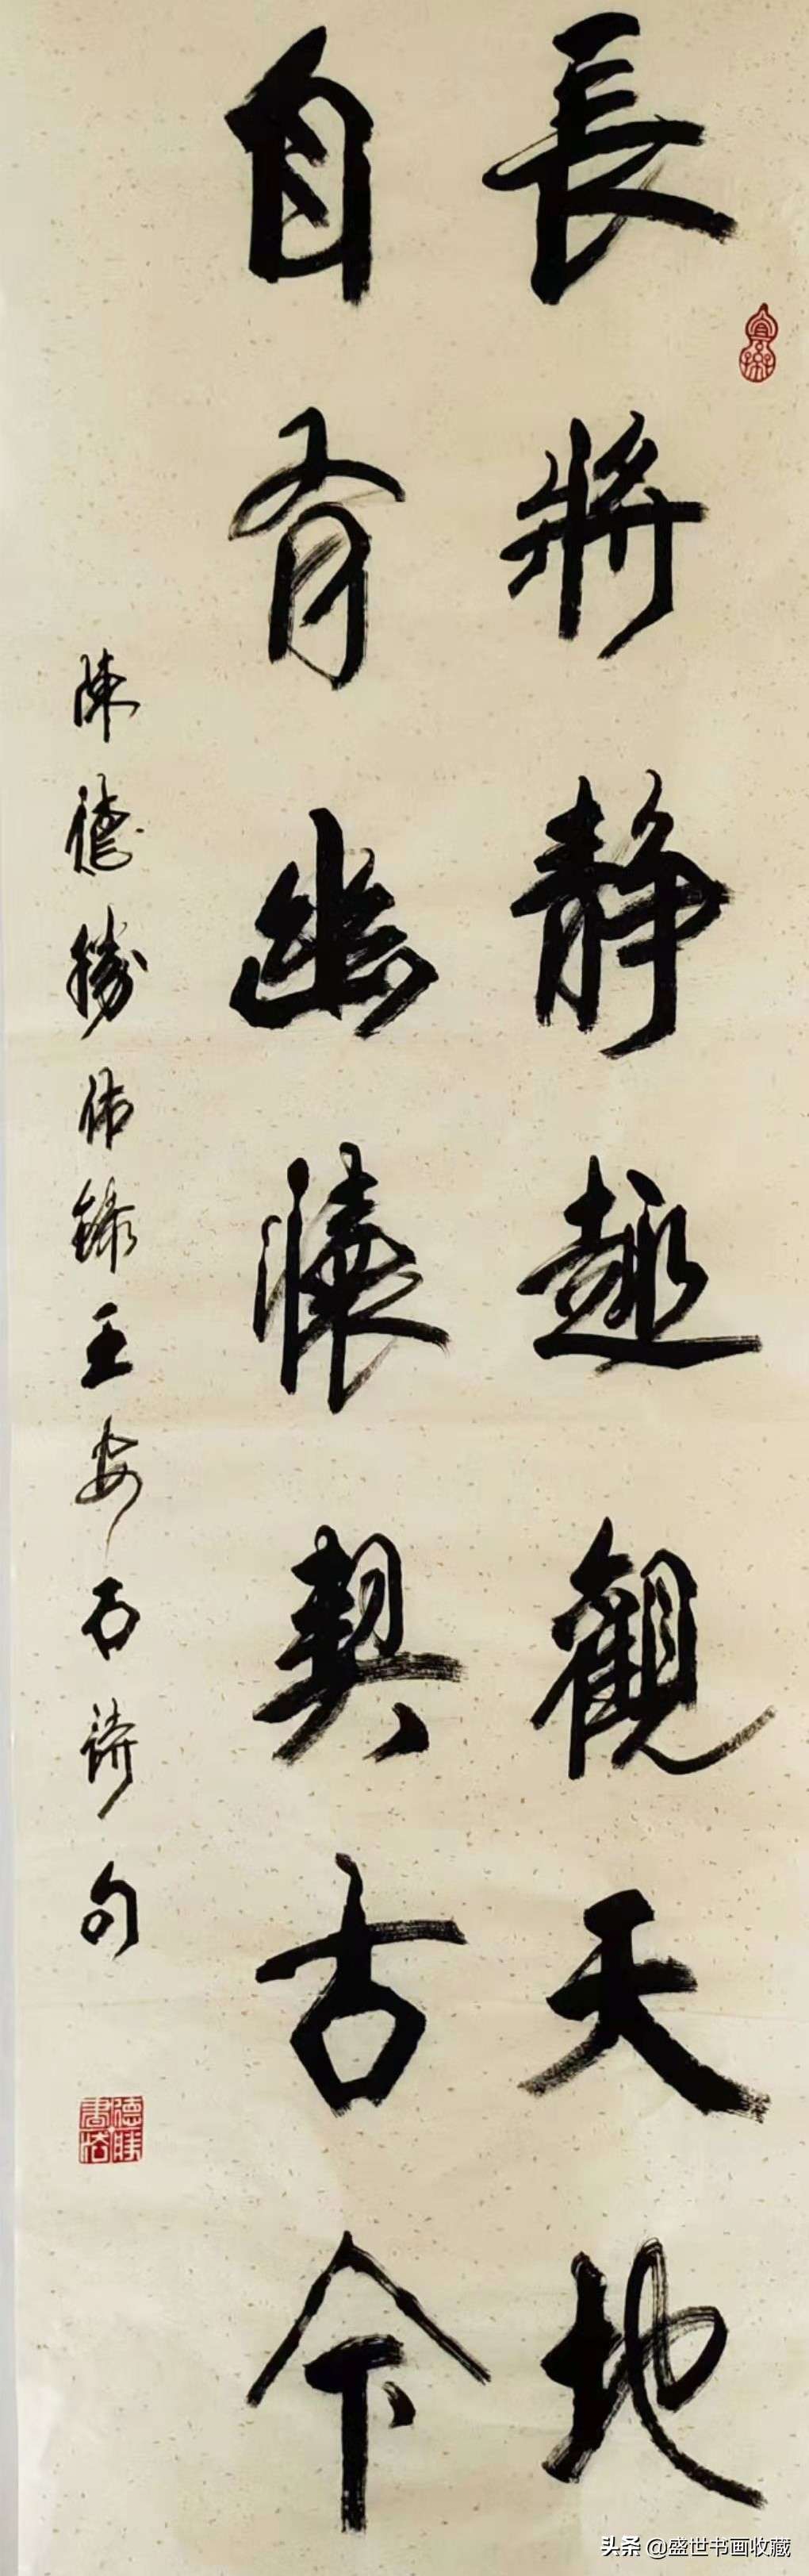 長將静趣觀天地
自有幽懷契古今
陳德勝
錄王安石詩句
德勝書法
头条 @盛世书画收藏